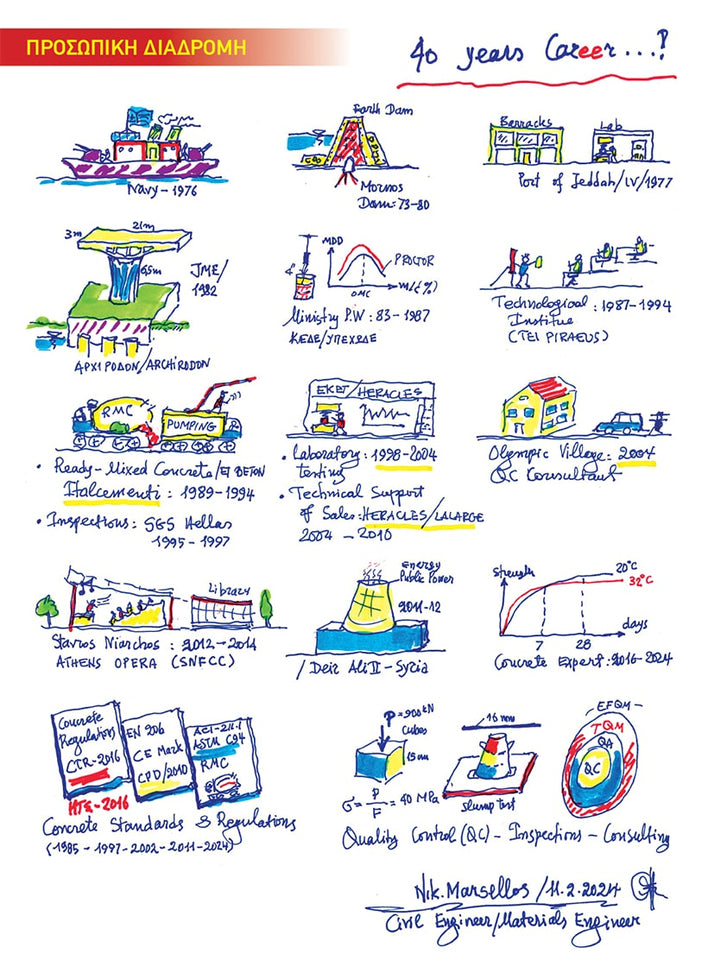 ΠΡΟΣΩΠΙΚΗ ΔΙΑΔΡΟΜΗ
40 years Career...?
Navy - 1976
Earth Dam
Mornos
Dam: 73-80
Berracks
Lab
Port of Jeddah/IV/1977
3m
21m
6,5m
JME/
1982
ΑΡΧΙΡΟΔΟΝ/ARCHIRODON
4"
MDD
PROCTOR
OMC
m/c(%)
Ministry P.W: 83-1987
ΚΕΔΕ/ΥΠΕΧΩΔΕ
Technological: 1987-1994
Institue
(TEI PIRAEUS)
RMC
PUMPING
• Ready-Mixed Concrete/ET BETON
Italcementi: 1989-1994
• Inspections: SGS Hellas
1995-1997
EKET/HERACLES
• Laboratory: 1998-2004
testing
• Technical Support
of Sales: HERACLES/LALARGE
2004 - 2010
Olympic Village: 2004
QC Consultant
Library
Stavros Niarchos: 2012-2014
ATHENS OPERA (SNFCC)
Energy
Public Power
2011-12
/Deir Ali II - Syria
Strength
20°C
32°C
7
28
days
Concrete Expert: 2016-2024
Concrete
Regulations
CTR-2016
ΚΤΣ-2016
EN 206
CE Mark
CPD/2010
ACI-211.1
ASTM C94
RMC
Concrete Standards & Regulations
(1985-1997-2002-2011-2024)
P=900kN
Cubes
15cm
σ = P/F = 40 MPa
16 mm
Slump test
-EFQM-
TQM
QA
QC
Quality Control (QC) - Inspections - Consulting
Nik. Marsellos /11.2.2024
Civil Engineer/Materials Engineer